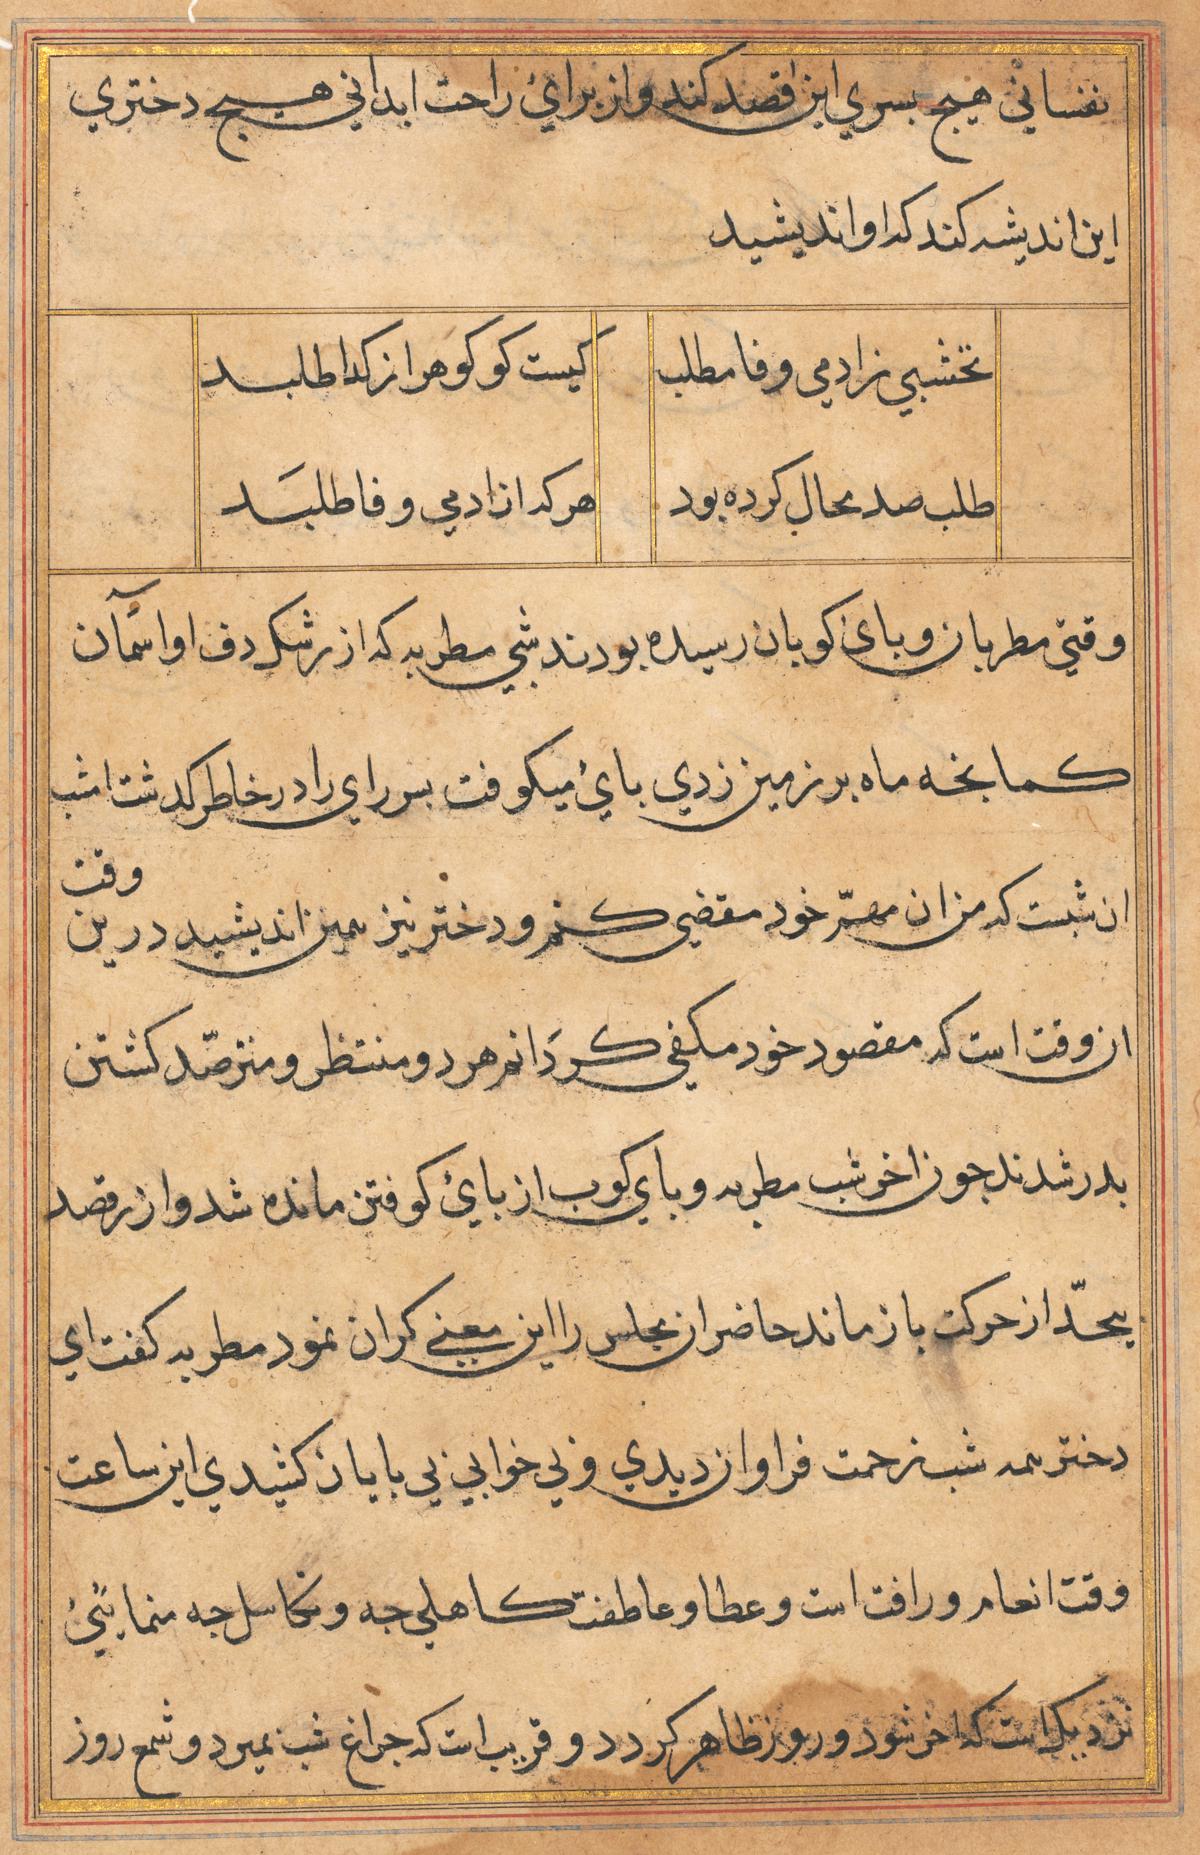 نفسانی هیج بسري این قصد کند و از برایٔ راحت ابدانی هیج دختري
این اندیشه کند که او اندیشید
نخشبي ز ادمي وفا مطلب
کیست کو کوهر از کدا طلبد
طلب صد محال کرده بود
هر که از ادمي وفا طلبَد
وقتي مطربان و بایٔ کوبان رسیده بودند شبي مطربه که از رشک دف او اسمآن
کمابخه ماه بر زمین زدي بایٔ میکوفت بس راي را در خاطر کدشت امشب
ان شبست که من ان مهمّ خود مقضي کنم و دختر نیز همین اندیشید درین
وقت
ان وقت است که مقصود خود مکفي کردَانم هر دو منتظر و مترصّد کشتن
بدر شدند جون اخر شب مطربه و باي کوب از بایٔ کوفتن مانده شد و از رقصد
بیحدّ از حرکت باز ماند حاضران مجلس را این معني کران نمود مطربه کفت اي
دختر همه شب زحمت فراوان دیدي و بي خوابي بي بایان کشیدي این ساعت
وقت انعام و رافت است و عطا و عاطفت کاهلي جه و تکاسل جه مینمایئي
نزدیک است که اخر شود و روز ظاهر کردد و قریب است که جراغ شب بمیرد و شمع روز